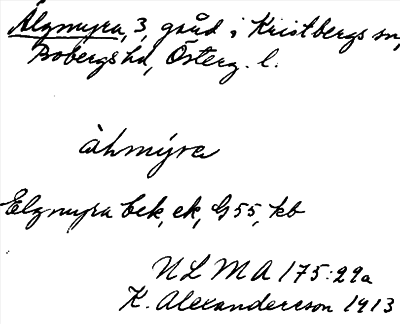 Älgmyra, 3, gård i Kristbergs sn,
Bobergs hd, Österg. l.
àlımýra
Elgmyra bek, ek, G 55, kb
NLMA 175:29a
K. Alexanderson 1913